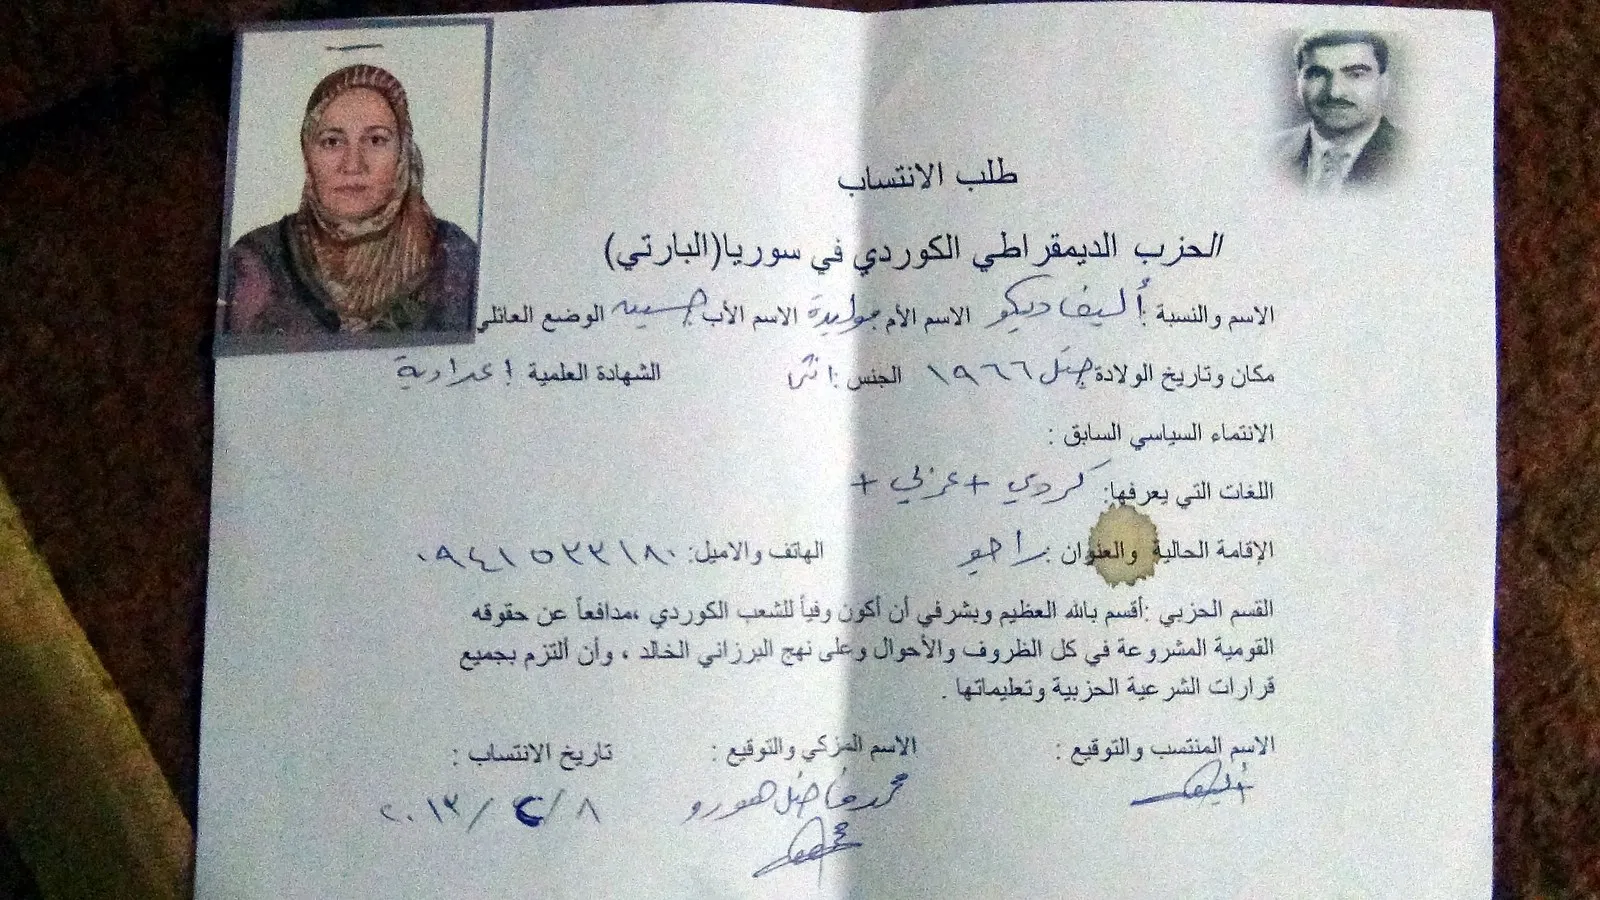 طلب الانتساب
الحزب الديمقراطي الكوردي في سوريا(البارتي)
الاسم والنسبة : أليفا ديكو الاسم الأم الاسم الأب الوضع العائلي
مكان وتاريخ الولادة ١٩٦٦ الجنس : انثى الشهادة العلمية إعدادية
الانتماء السياسي السابق :
اللغات التي يعرفها: كردي + عربي +
الإقامة الحالية والعنوان : راجو الهاتف والاميل: ٠٩٤١٥٣٣١٨٠
القسم الحزبي :أقسم بالله العظيم وبشرفي أن أكون وفياً للشعب الكوردي ،مدافعاً عن حقوقه
القومية المشروعة في كل الظروف والأحوال وعلى نهج البرزاني الخالد ، وأن ألتزم بجميع
قرارات الشرعية الحزبية وتعليماتها .
الاسم المنتسب والتوقيع : الاسم المزكي والتوقيع : تاريخ الانتساب :
أليفا محمد فاضل هورو ٨/ ٢/ ٢٠١٣